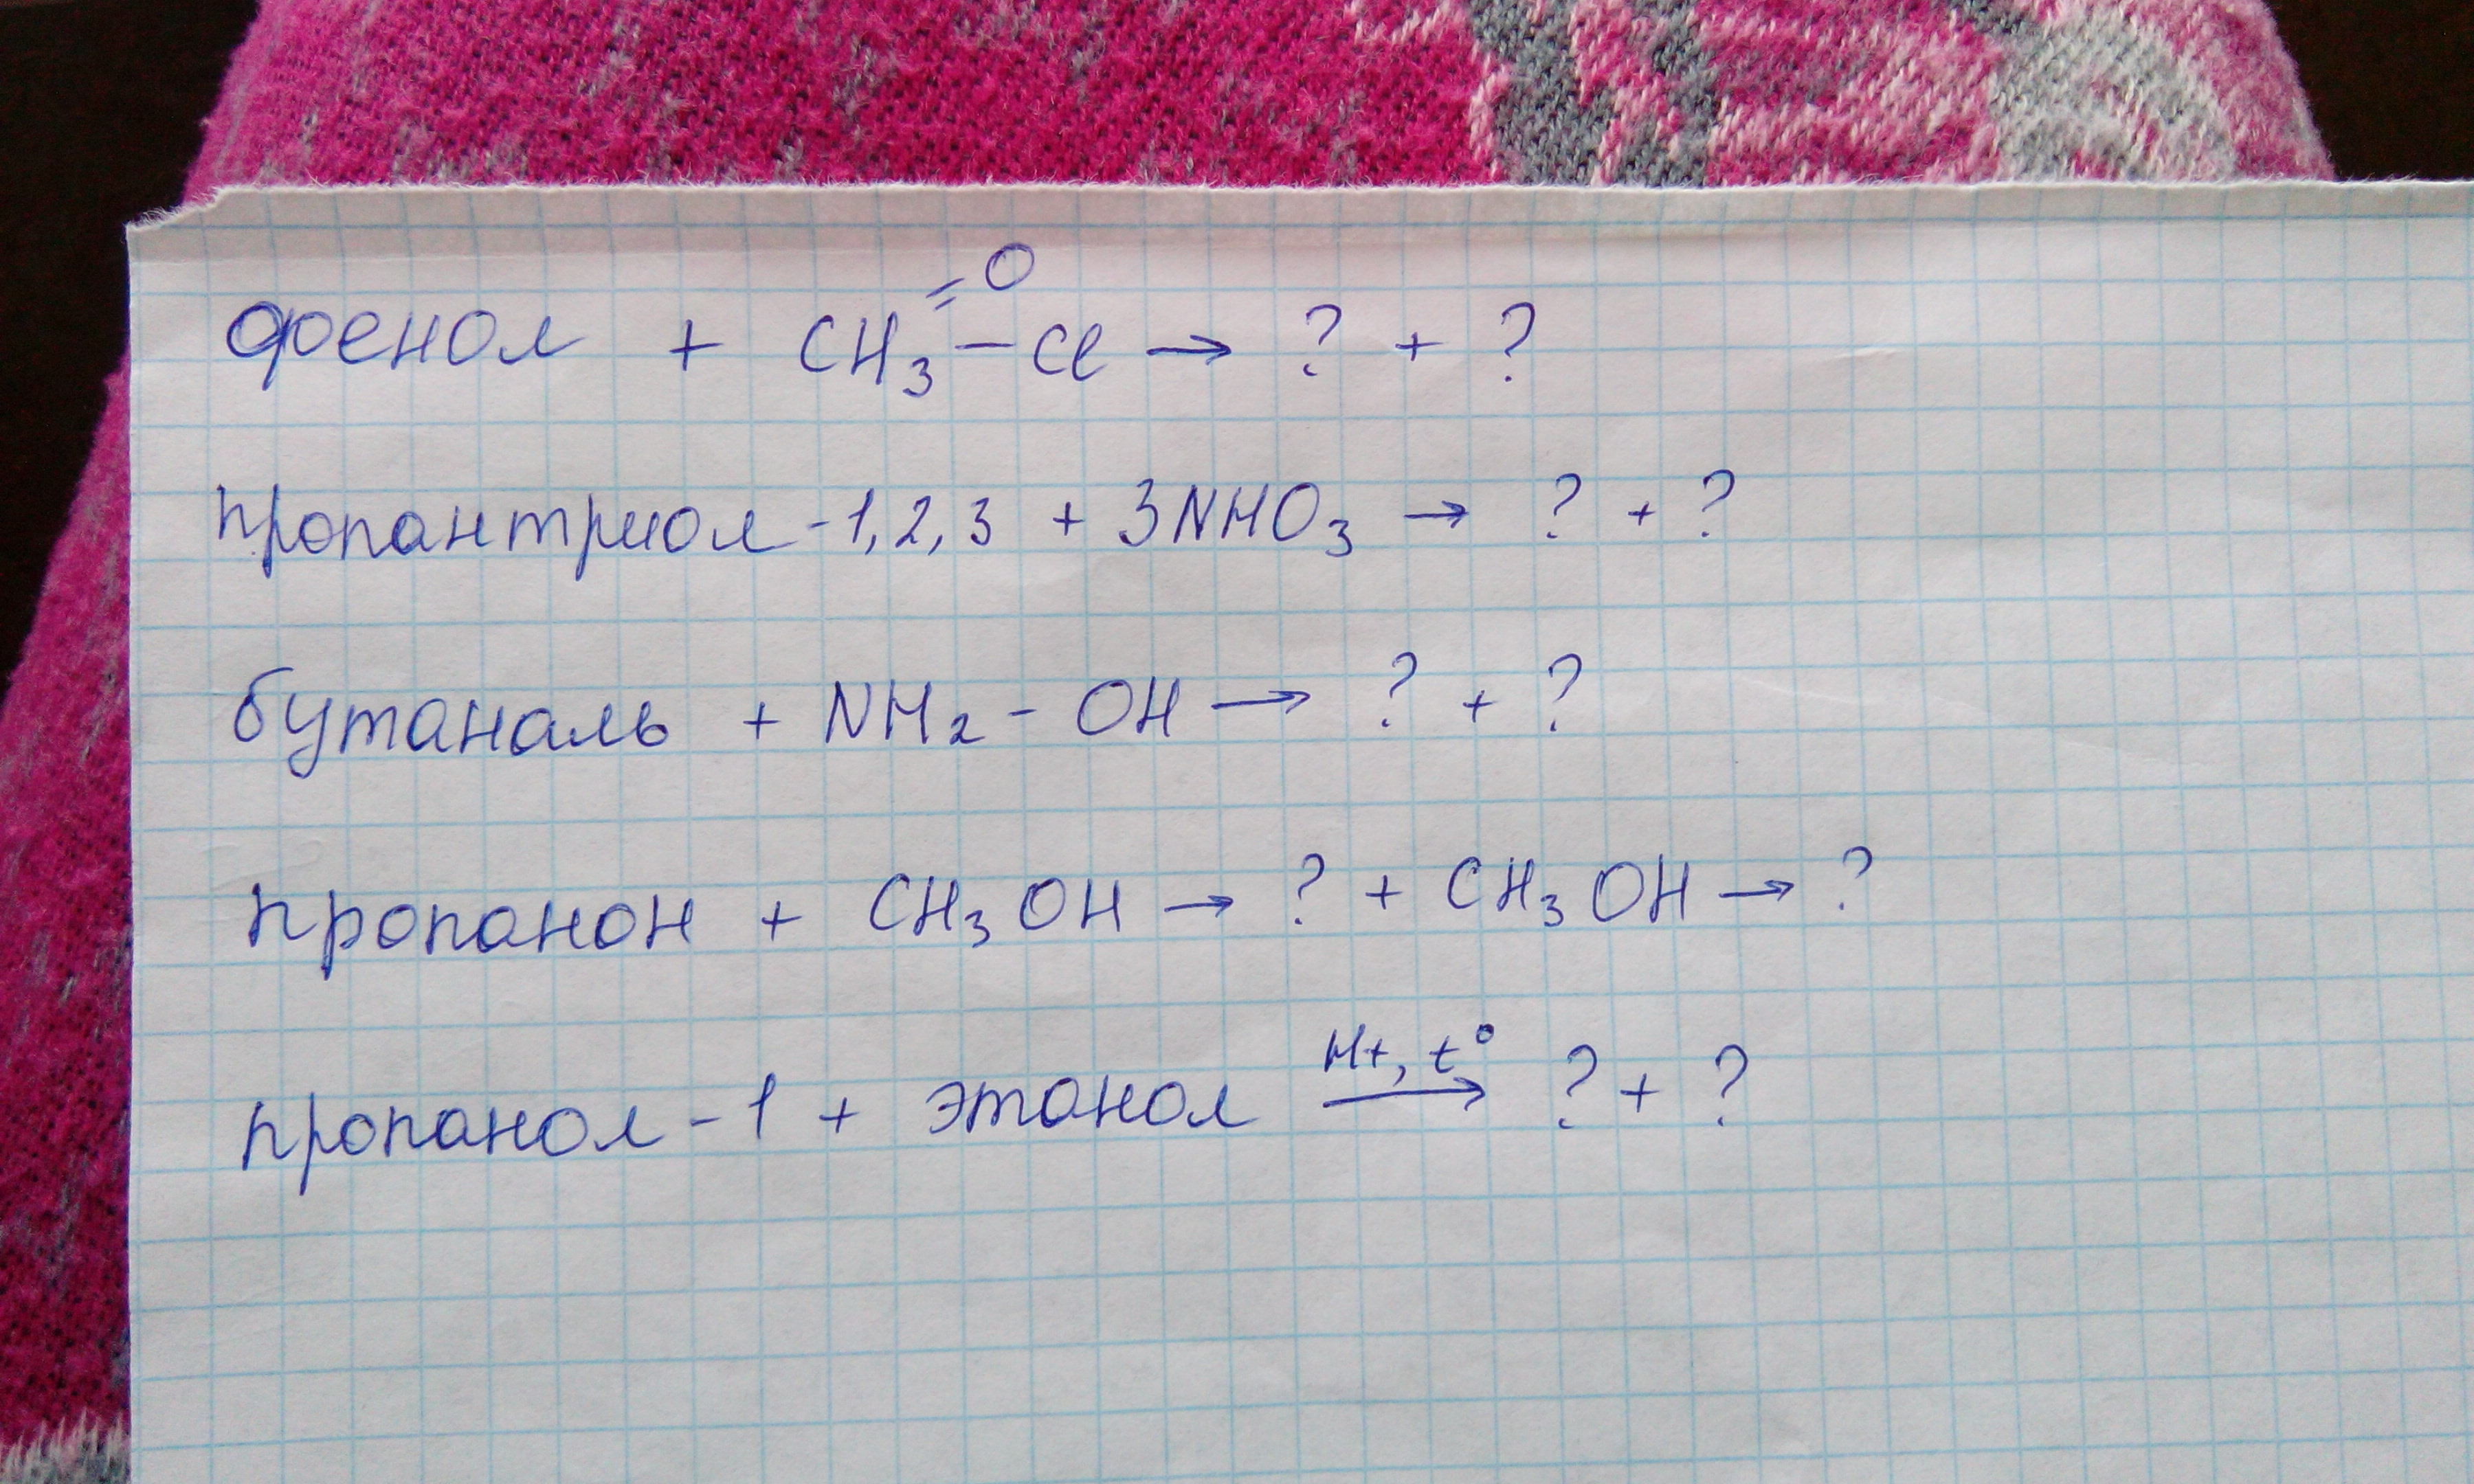 фенол + CH₃=O–Cl → ? + ?
пропантриол-1,2,3 + 3NHO₃ → ? + ?
бутаналь + NH₂-OH → ? + ?
пропанон + CH₃OH → ? + CH₃OH → ?
H+, t°
пропанол-1 + этанол → ? + ?